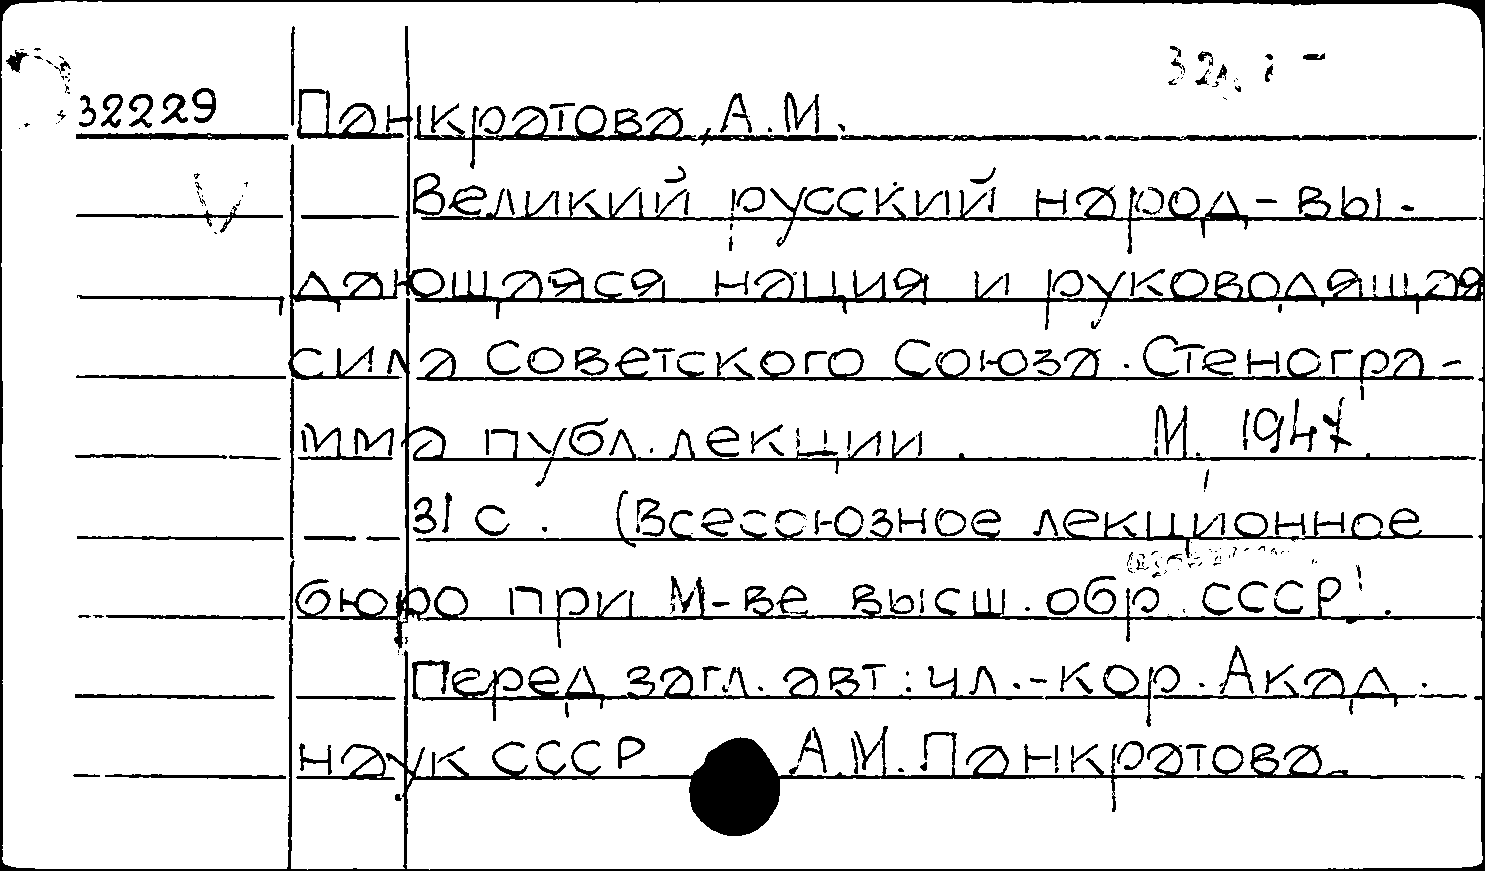 32229 Панкратова, А.М.
Великий русский народ-вы-
дающаяся нация и руководящая
сила Советского Союза. Стеногра-
мма публ. лекции. М. 1947.
31 с. (Всесоюзное лекционное
бюро при М-ве высш. обр. СССР).
Перед загл. авт: чл.-кор. Акад.
наук СССР А.М. Панкратова.